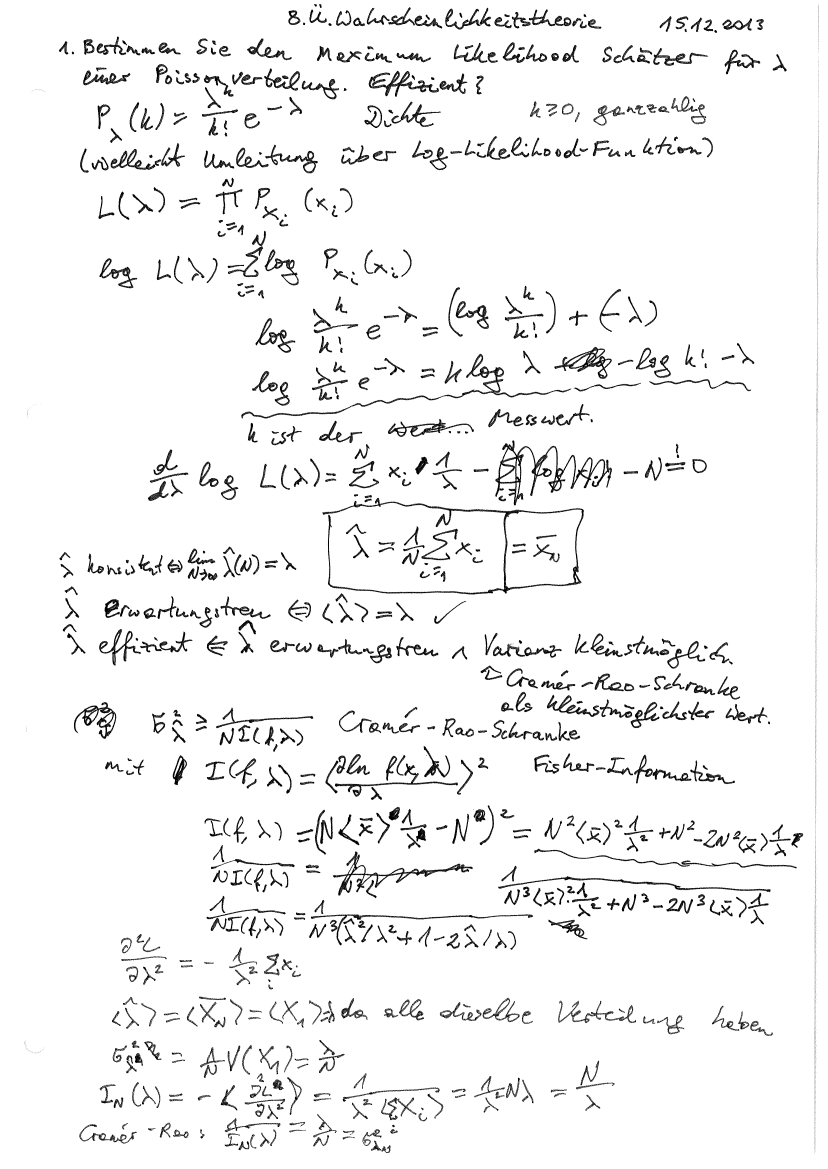 8.Ü. Wahrscheinlichkeitstheorie 15.12.2013
1. Bestimmen Sie den Maximum Likelihood Schätzer für λ
einer Poissonverteilung. Effizient?
P_λ(k) = λ^k/k! e^{-λ} Dichte k≥0, ganzzahlig
(vielleicht Umleitung über Log-Likelihood-Funktion)
L(λ) = ∏_{i=1}^N P_{x_i}(x_i)
log L(λ) = ∑_{i=1}^N log P_{x_i}(x_i)
log λ^k/k! e^{-λ} = (log λ^k/k!) + (-λ)
log λ^k/k! e^{-λ} = k log λ - log k! - λ
k ist der Messwert.
d/dλ log L(λ) = ∑_{i=1}^N x_i · 1/λ - N =! 0
λ̂ = 1/N ∑_{i=1}^N x_i = x̄_N
λ̂ konsistent ⇔ lim_{N→∞} λ̂(N) = λ
λ̂ erwartungstreu ⇔ ⟨λ̂⟩ = λ ✓
λ̂ effizient ⇐ λ̂ erwartungstreu ∧ Varianz kleinstmöglich.
Cramér-Rao-Schranke
als kleinstmöglichster Wert.
σ²_λ̂ ≥ 1/(N I(f,λ)) Cramér-Rao-Schranke
mit I(f,λ) = ⟨∂ln f(x,λ)/∂λ⟩² Fisher-Information
I(f,λ) = (N⟨x̄⟩ 1/λ - N)² = N²⟨x̄⟩² 1/λ² + N² - 2N²⟨x̄⟩ 1/λ
1/(N I(f,λ)) = 1/(N³⟨x̄⟩² 1/λ² + N³ - 2N³⟨x̄⟩ 1/λ)
1/(N I(f,λ)) = 1/(N³(λ̂²/λ² + 1 - 2λ̂/λ))
∂²L/∂λ² = - 1/λ² ∑_i x_i
⟨λ̂⟩ = ⟨X̄_N⟩ = ⟨X_1⟩ = λ da alle dieselbe Verteilung haben
= 1/N V(X_1) = λ/N
I_N(λ) = -⟨∂²L/∂λ²⟩ = 1/λ² ⟨∑_i X_i⟩ = 1/λ² Nλ = N/λ
Cramér-Rao: 1/I_N(λ) = λ/N = σ²